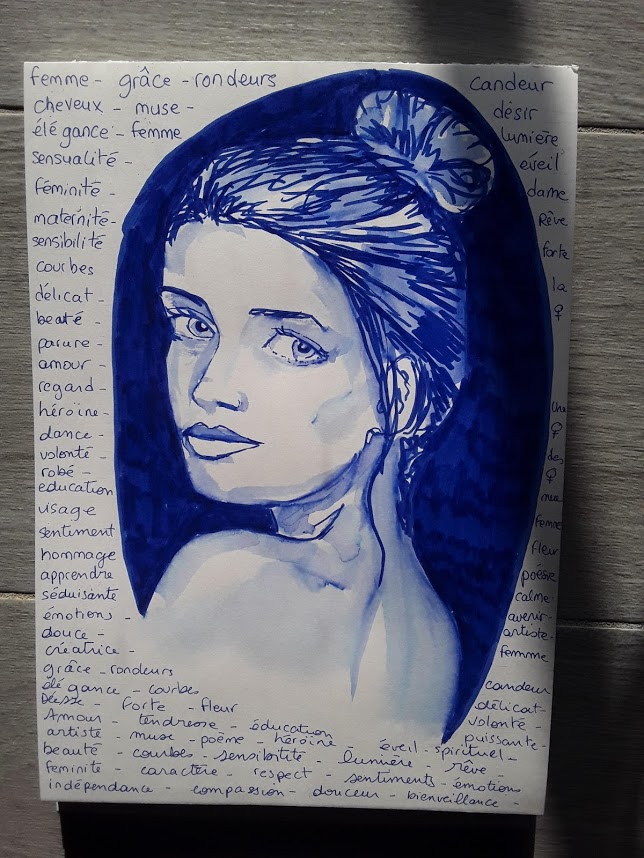 femme - grâce - rondeurs
cheveux - muse -
élégance - femme
sensualité -
féminité -
maternité -
sensibilité
courbes
délicat -
beaté -
parure -
amour -
regard -
héroïne -
dance -
volonté -
robé -
education
visage
sentiment
hommage
apprendre
séduisante
émotions -
douce -
créatrice -
grâce - rondeurs
élégance - courbes
Déesse - forte - fleur
Amour - tendresse - éducation
artiste - muse - poème - héroïne -
beauté - courbes - sensibilité - lumière - rêve
feminité - caractère - respect - sentiments - émotions
indépendance - compassion - douceur - bienveillance -
candeur
désir
lumière
éveil
dame
Rêve
forte
la
♀
une
♀
des
♀
femme
fleur
poésie
calme -
avenir -
artiste -
femme
candeur
délicat -
volonté -
puissante -
éveil - spirituel -